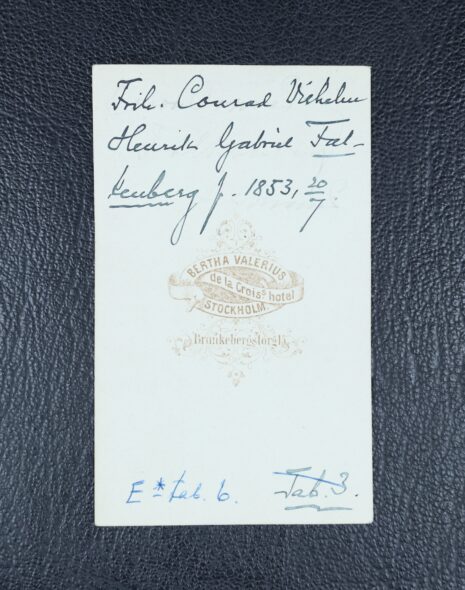 Frih. Conrad Vilhelm
Henrik Gabriel Fal-
kenberg f. 1853, 20/7.
BERTHA VALERIUS
de la Croix's hotel
STOCKHOLM
Brunkebergstorg 15
E* tab. 6.
Tab. 3.